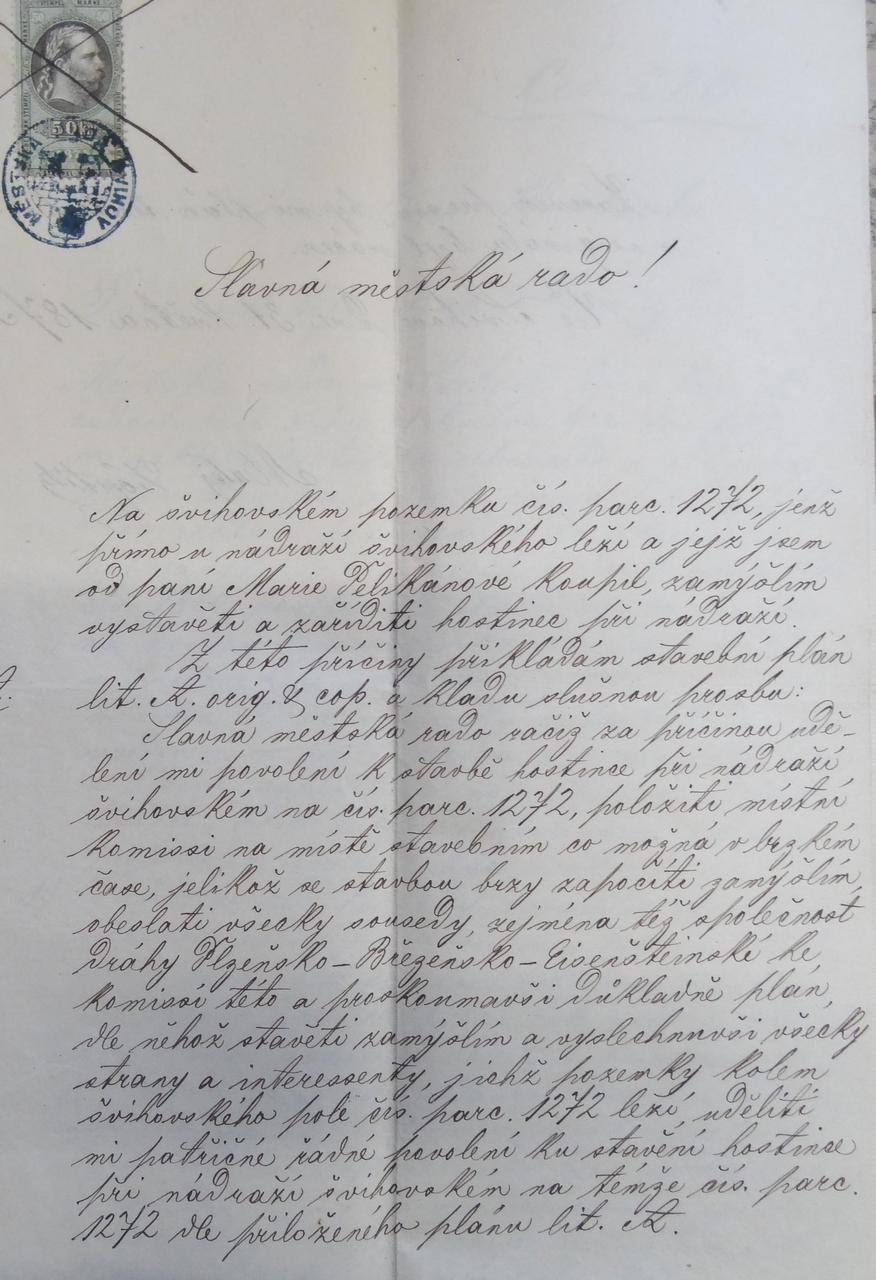 STEMPEL MARKE
50 kr
MĚSTSKÁ RADA
Slavná městská rado!
Na švihovském pozemku čís. parc. 1272, jenž
přímo u nádraží švihovského leží a jejž jsem
od paní Marie Pelikánové koupil, zamýšlím
vystavěti a zaříditi hostinec při nádraží.
Z této příčiny přikládám stavební plán
lit. A. orig. & cop. a kladu slušnou prosbu:
Slavná městská rado račiž za příčinou udě-
lení mi povolení k stavbě hostince při nádraží
švihovském na čís. parc. 1272, položiti místní
komissi na místě stavebním co možná v brzkém
čase, jelikož se stavbou brzy započíti zamýšlím,
obeslati všecky sousedy, zejména též společnost
dráhy Plzeňsko-Březeňsko-Eisenšteinské ke
komissí této a proskoumavši důkladně plán,
dle něhož stavěti zamýšlím a vyslechnuvši všecky
strany a interessenty, jichž pozemky kolem
švihovského pole čís. parc. 1272 leží, uděliti
mi patřičné řádné povolení ku stavění hostince
při nádraží švihovském na témže čís. parc.
1272 dle přiloženého plánu lit. A.